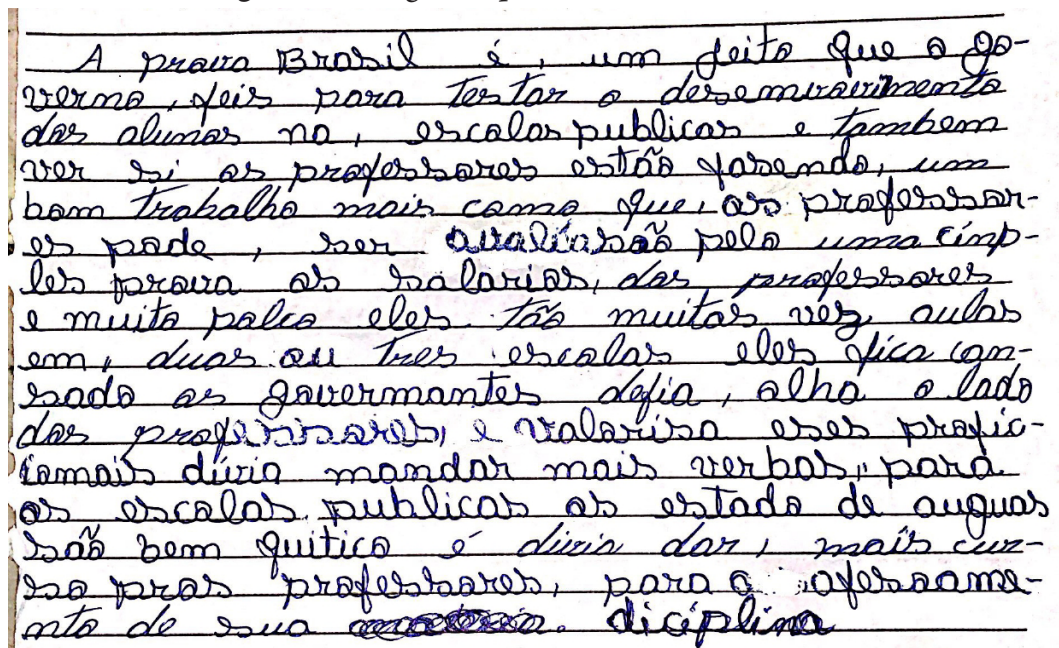 A prova Brasil é, um feito que o go-
verno, feis para testar o desemvovimento
dos alunos na, escolas publicas e tambem
ver si os professores estão fasendo, um
bom trabalho mais como que, os professor-
es pode, ser avaliasão pelo uma cimp-
les prova os salarios, dos, professores
e muito polco eles tão muitas vez, aulas
em, duas ou tres escolas eles fica can-
sado os governantes defia, olha o lado
dos professores, e valorisa eses profic-
ionais divia mandar mais verbas, para
as escolas publicas os estado de auguas
são bem quitico é divia dar, mais cur-
so pros professores, para o afersoame-
nto de sua diciplina